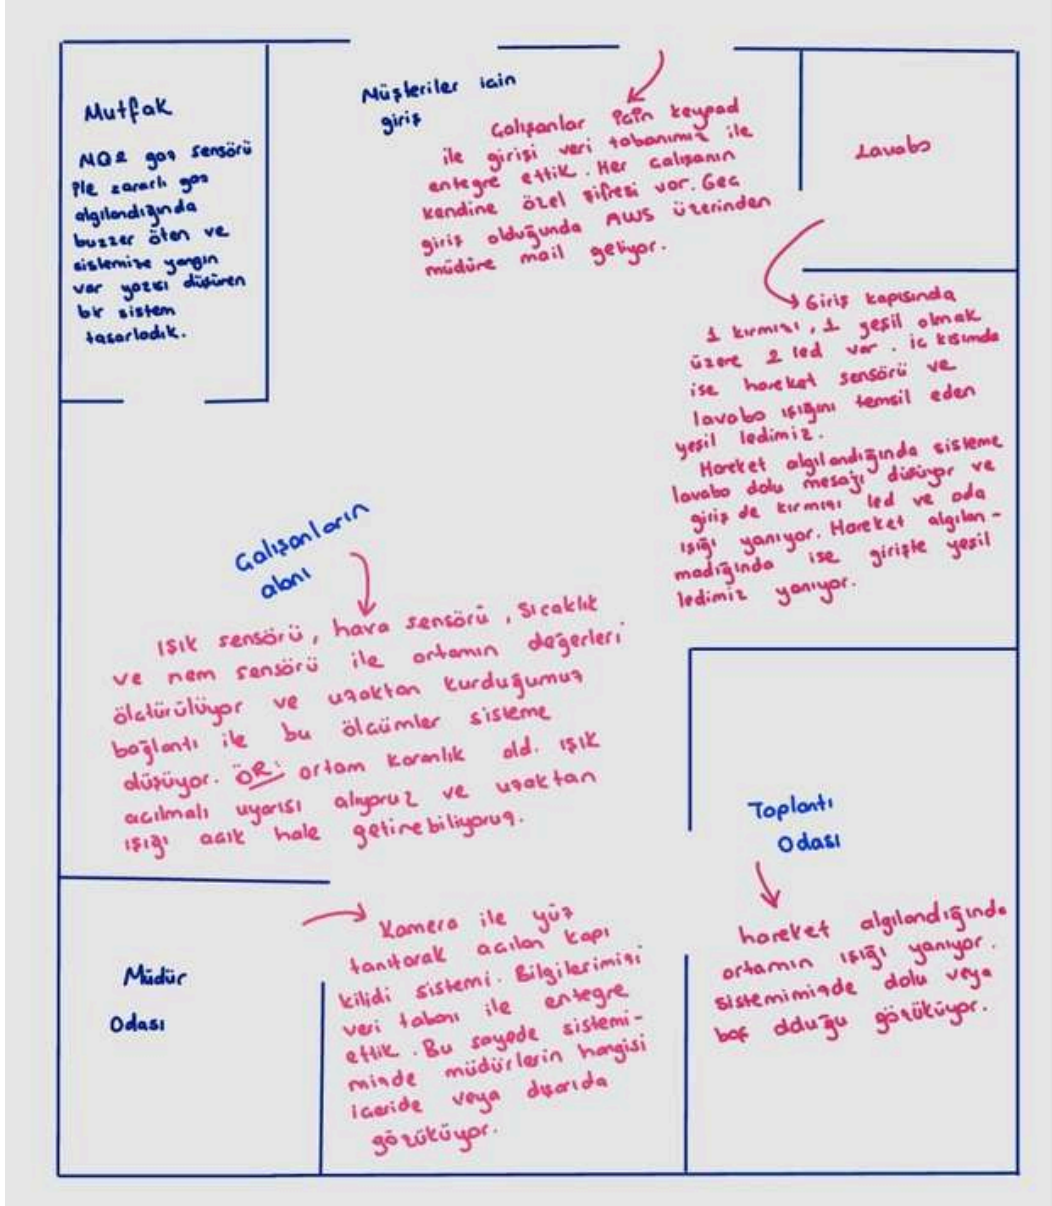 Mutfak
MQ2 gaz sensörü
ile zararlı gaz
algılandığında
buzzer öten ve
sistemize yangın
var yazısı düşüren
bir sistem
tasarladık.
Müşteriler için
giriş
Çalışanlar için keypad
ile girişi veri tabanımız ile
entegre ettik. Her calışanın
kendine özel şifresi var. Gec
giriş olduğunda AWS üzerinden
müdüre mail geliyor.
Lavabo
Giriş kapısında
1 kırmızı, 1 yeşil olmak
üzere 2 led var. ic kısımda
ise hareket sensörü ve
lavabo ışığını temsil eden
yeşil ledimiz.
Hareket algılandığında sisteme
lavabo dolu mesajı düşüyor ve
giriş de kırmızı led ve oda
ışığı yanıyor. Hareket algılan-
madığında ise girişte yeşil
ledimiz yanıyor.
Çalışanların
alanı
Işık sensörü, hava sensörü, Sıcaklık
ve nem sensörü ile ortamın değerleri
ölctürülüyor ve uzaktan kurduğumuz
bağlantı ile bu ölcümler sisteme
düşüyor. ÖR: ortam karanlık old. ışık
acılmalı uyarısı alıyoruz ve uzaktan
ışığı acık hale getirebiliyoruz.
Toplantı
Odası
hareket algılandığında
ortamın ışığı yanıyor.
sistemimizde dolu veya
boş olduğu gözüküyor.
Müdür
Odası
Kamera ile yüz
tanıtarak acılan kapı
kilidi sistemi. Bilgilerimizi
veri tabanı ile entegre
ettik. Bu sayede sistemi-
mizde müdürlerin hangisi
iceride veya dışarıda
gözüküyor.